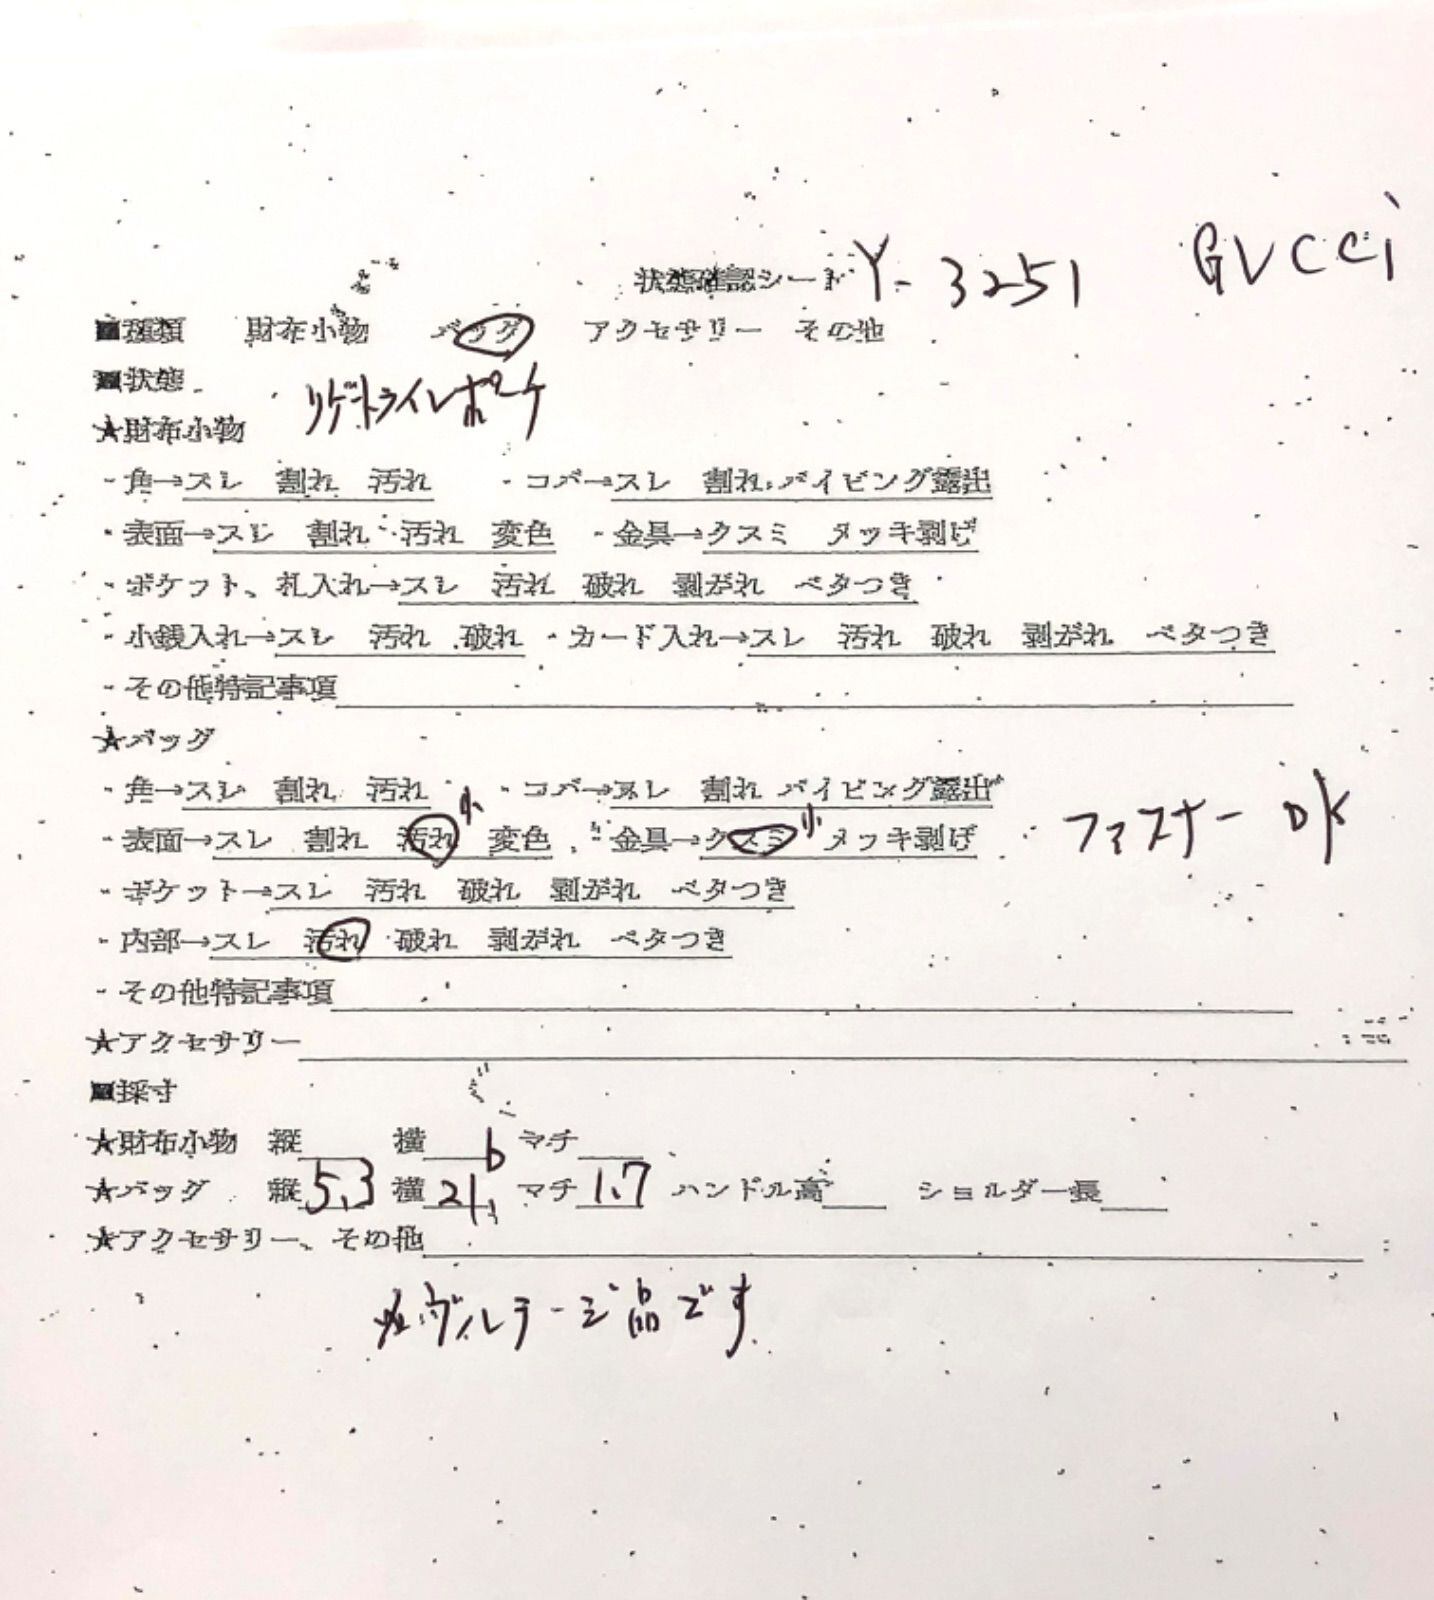 状態確認シート Y-3251 GUCCI
■種類 財布小物 バッグ アクセサリー その他
■状態
★財布小物
・角→スレ 割れ 汚れ ・コバ→スレ 割れ パイピング露出
・表面→スレ 割れ 汚れ 変色 ・金具→クスミ メッキ剥げ
・ポケット、札入れ→スレ 汚れ 破れ 剥がれ ベタつき
・小銭入れ→スレ 汚れ 破れ ・カード入れ→スレ 汚れ 破れ 剥がれ ベタつき
・その他特記事項
★バッグ
・角→スレ 割れ 汚れ ・コバ→スレ 割れ パイピング露出
・表面→スレ 割れ 汚れ 小 変色 ・金具→クスミ 小 メッキ剥げ ファスナー OK
・ポケット→スレ 汚れ 破れ 剥がれ ベタつき
・内部→スレ 汚れ 破れ 剥がれ ベタつき
・その他特記事項
★アクセサリー
■採寸
★財布小物 縦 横 マチ
★バッグ 縦 5.3 横 21. マチ 1.7 ハンドル高 ショルダー長
★アクセサリー、その他
品です